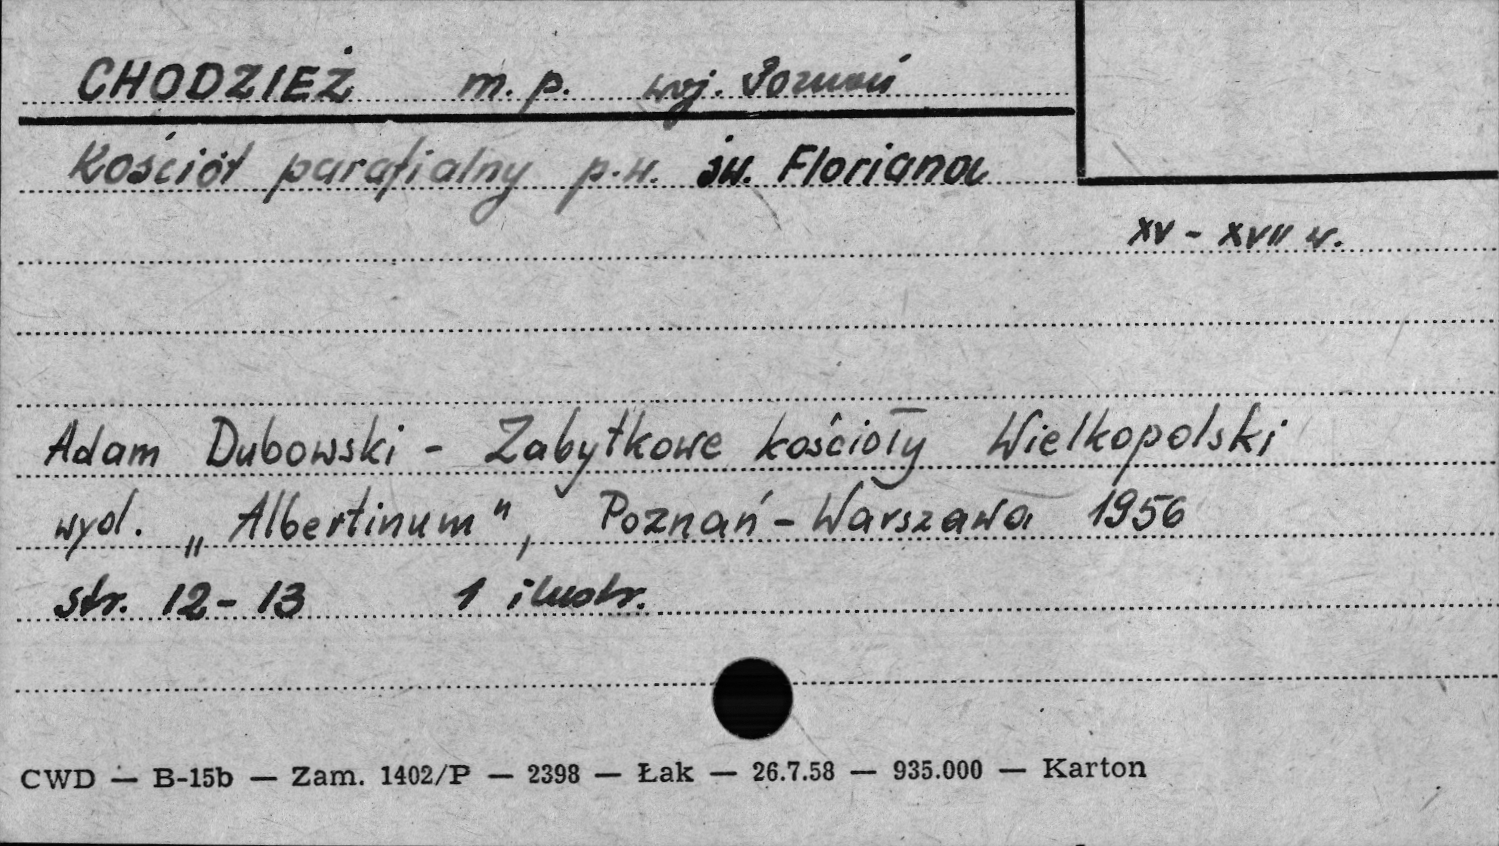 CHODZIEŻ m. p. woj. Poznań
Kościół parafialny p.w. św. Floriana
XV - XVII w.
Adam Dubowski - Zabytkowe kościoły Wielkopolski
wyd. „Albertinum", Poznań - Warszawa 1956
str. 12 - 13 1 ilustr.
CWD — B-15b — Zam. 1402/P — 2398 — Łak — 26.7.58 — 935.000 — Karton